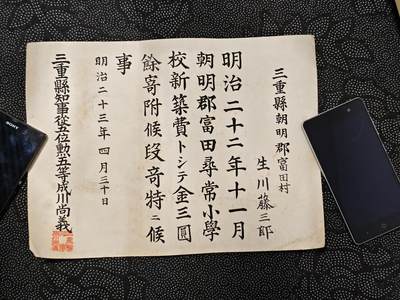 三重縣朝明郡富田村
生川藤三郎
明治二十二年十一月
朝明郡富田尋常小學
校新築費トシテ金三圓
餘寄附候段奇特ニ候
事
明治二十三年四月三十日
三重縣知事從五位勳五等成川尚義
SONY